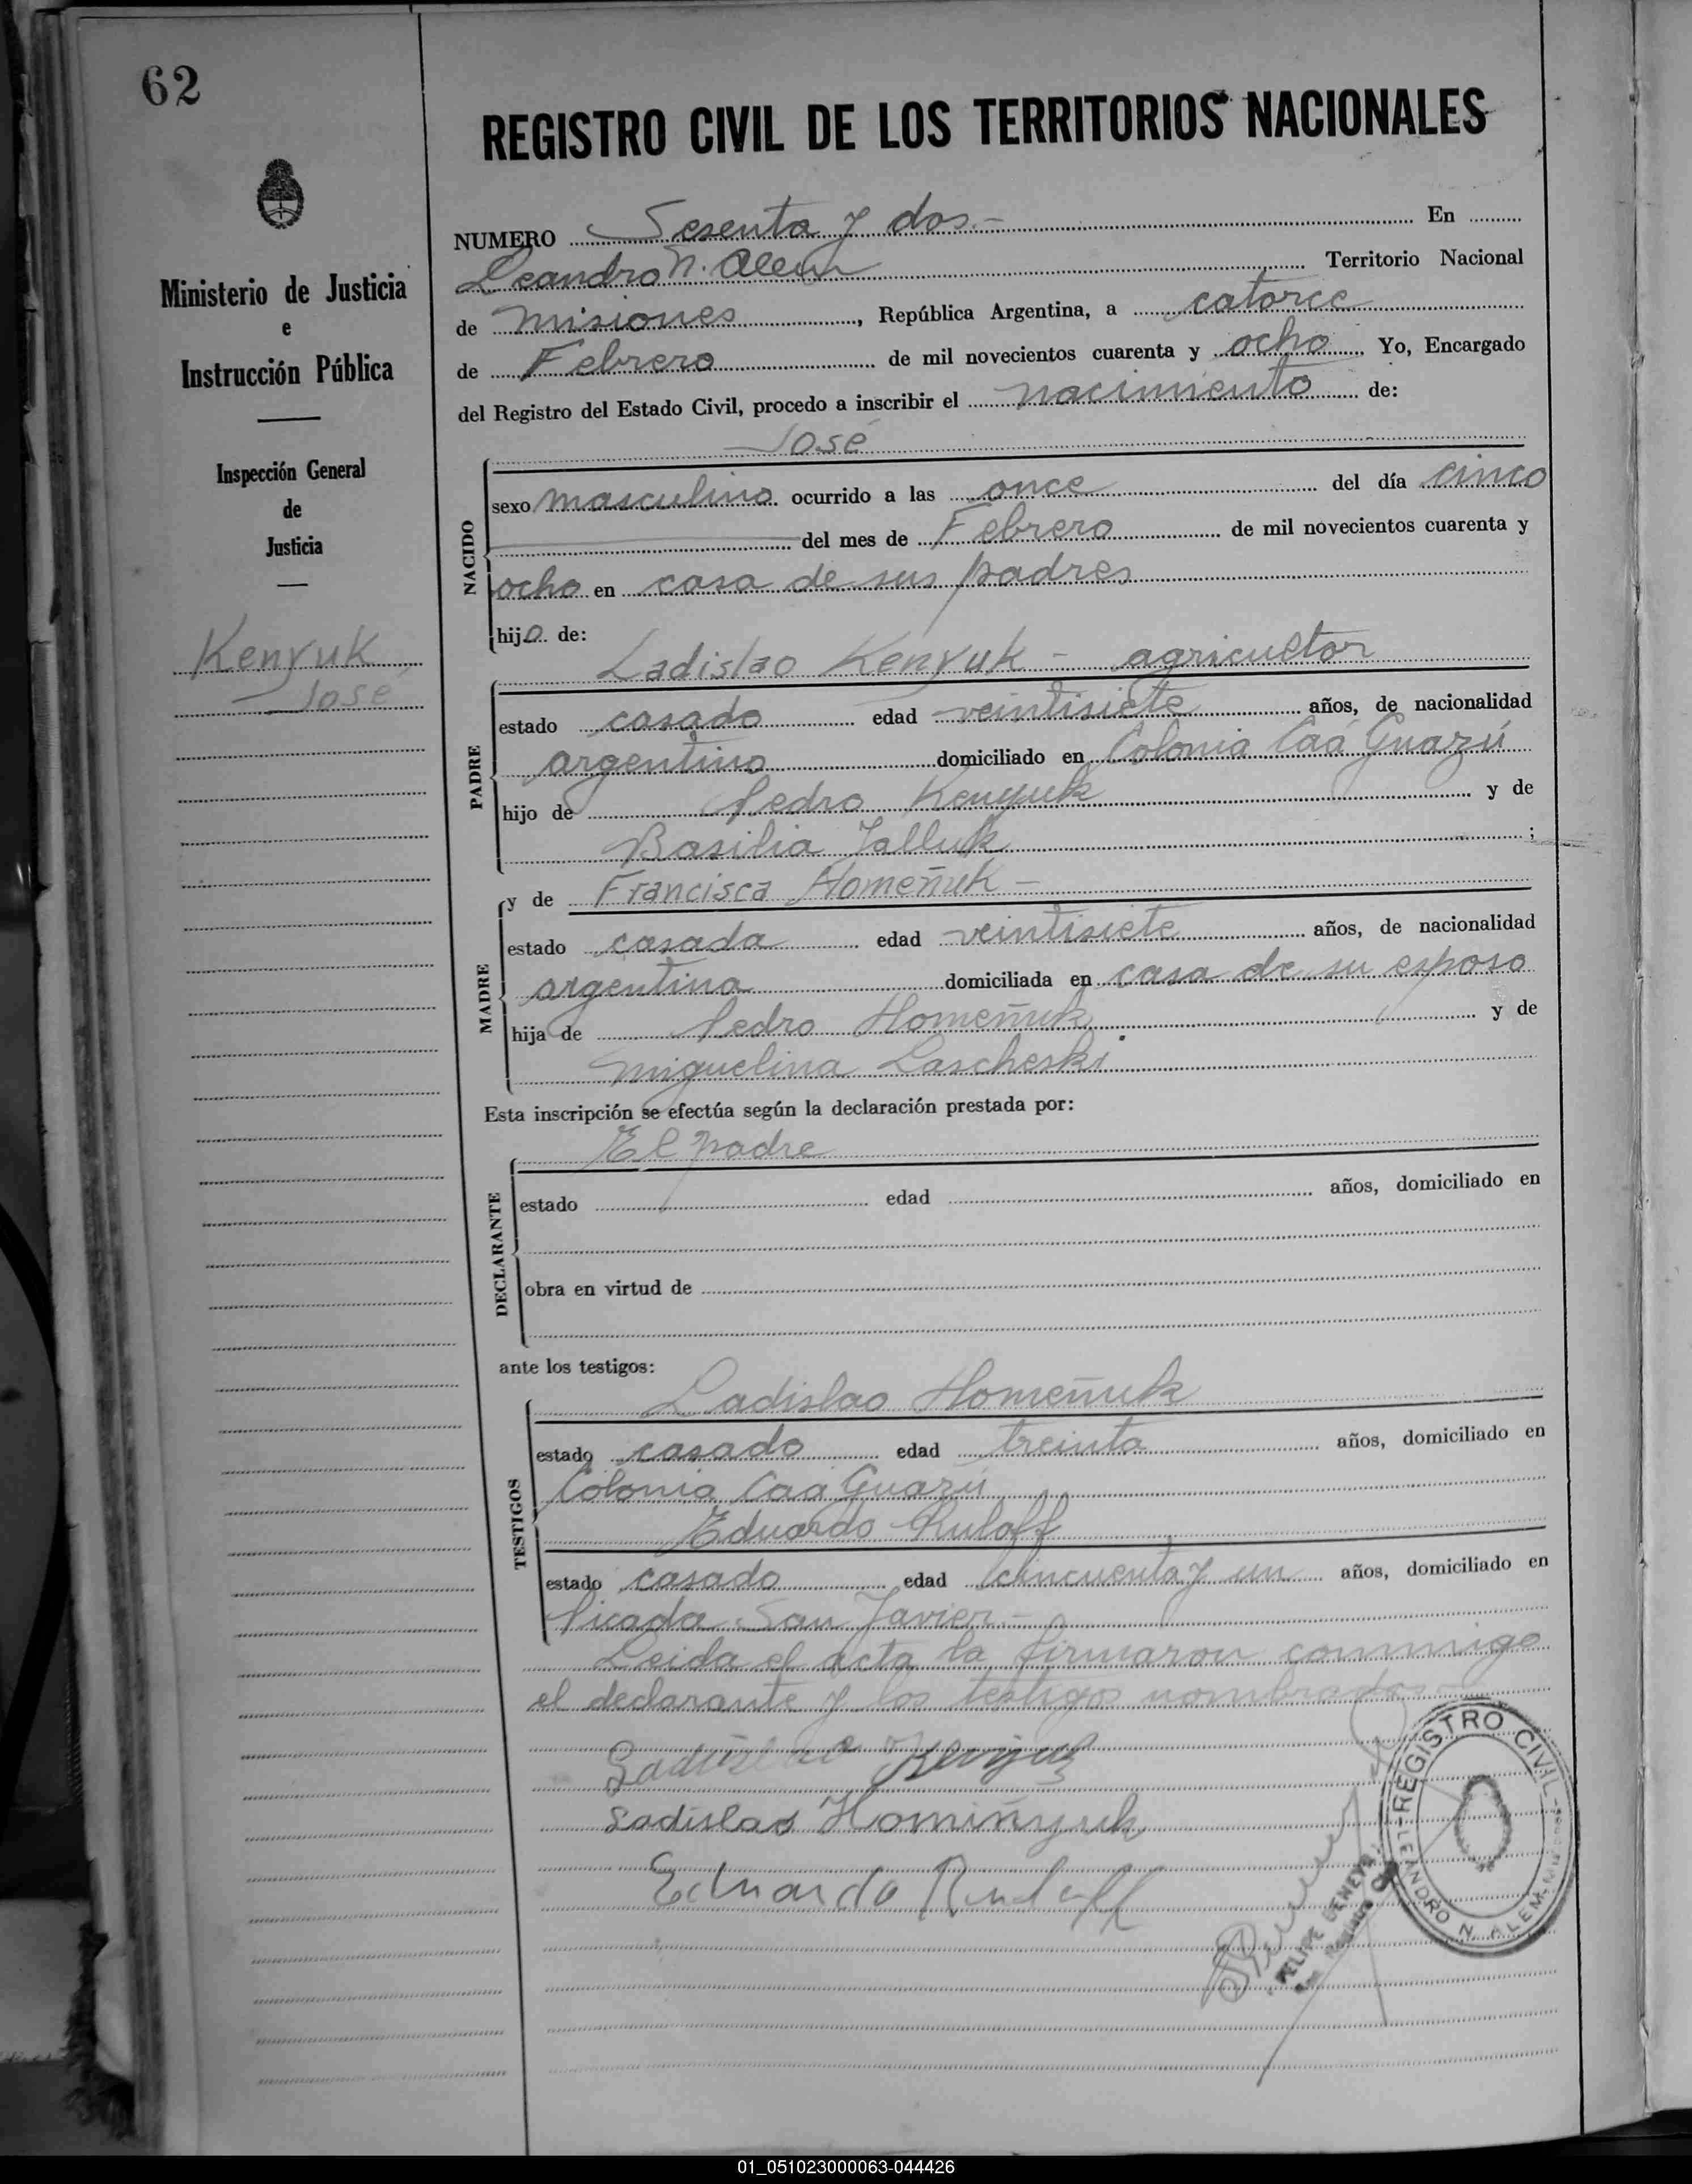 62
REGISTRO CIVIL DE LOS TERRITORIOS NACIONALES
Ministerio de Justicia
e
Instrucción Pública
Inspección General
de
Justicia
Kenyuk
José
NUMERO Sesenta y dos.- En
Leandro N. Alem Territorio Nacional
de Misiones, República Argentina, a catorce
de Febrero de mil novecientos cuarenta y ocho Yo, Encargado
del Registro del Estado Civil, procedo a inscribir el nacimiento de:
José
NACIDO
sexo masculino ocurrido a las once del día cinco
del mes de Febrero de mil novecientos cuarenta y
ocho en casa de sus padres
hijo de:
Ladislao Kenyuk - agricultor
PADRE
estado casado edad veintisiete años, de nacionalidad
argentino domiciliado en Colonia Caá Guazú
hijo de Pedro Kenyuk y de
Basilia Talluk ;
y de Francisca Homeñuk -
MADRE
estado casada edad veintisiete años, de nacionalidad
argentina domiciliada en casa de su esposo
hija de Pedro Homeñuk y de
Miguelina Lascheski
Esta inscripción se efectúa según la declaración prestada por:
El padre
DECLARANTE
estado edad años, domiciliado en
obra en virtud de
ante los testigos:
Ladislao Homeñuk
TESTIGOS
estado casado edad treinta años, domiciliado en
Colonia Caá Guazú
Eduardo Ruloff
estado casado edad cincuenta y un años, domiciliado en
Picada San Javier.-
Leida el acta la firmaron conmigo
el declarante y los testigos nombrados.-
Ladislao Kenyuk
Ladislao Homiñyuk
Eduardo Ruloff
REGISTRO CIVIL
LEANDRO N. ALEM
FELIPE
01_051023000063-044426